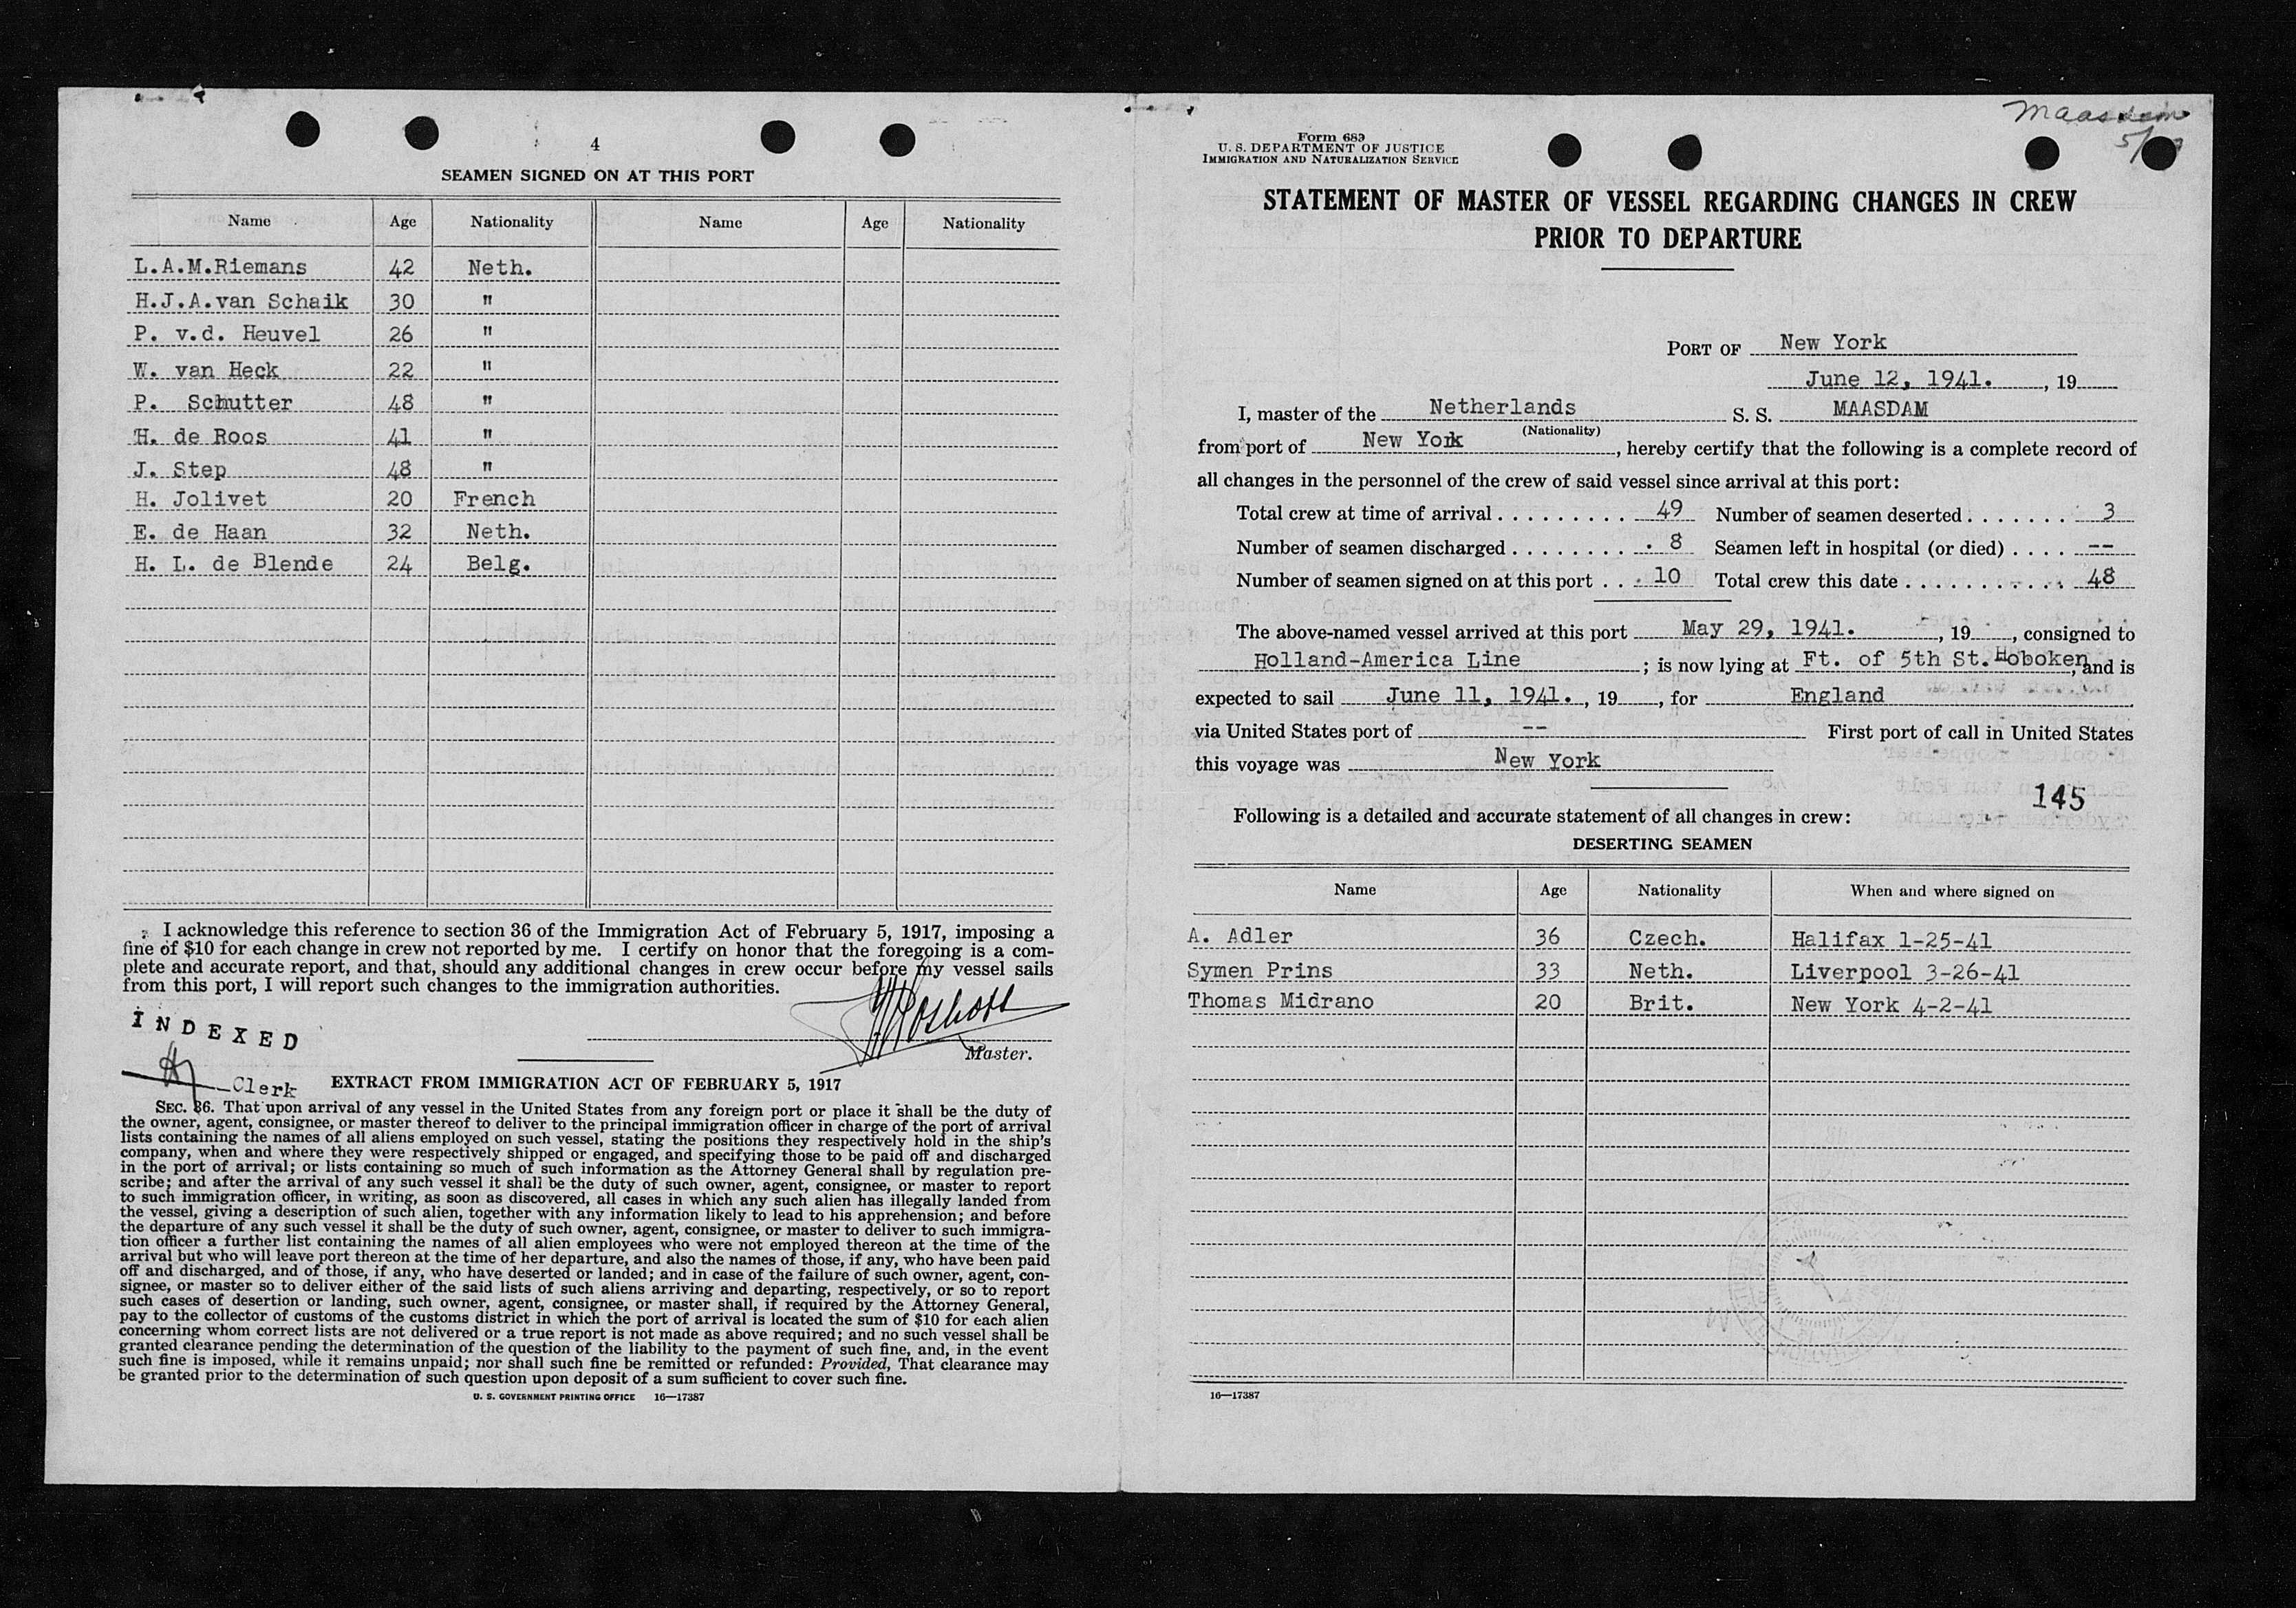 4
SEAMEN SIGNED ON AT THIS PORT
Name Age Nationality Name Age Nationality
L.A.M.Riemans 42 Neth.
H.J.A.van Schaik 30 "
P. v.d. Heuvel 26 "
W. van Heck 22 "
P. Schutter 48 "
H. de Roos 41 "
J. Step 48 "
H. Jolivet 20 French
E. de Haan 32 Neth.
H. L. de Blende 24 Belg.
I acknowledge this reference to section 36 of the Immigration Act of February 5, 1917, imposing a
fine of $10 for each change in crew not reported by me. I certify on honor that the foregoing is a com-
plete and accurate report, and that, should any additional changes in crew occur before my vessel sails
from this port, I will report such changes to the immigration authorities.
INDEXED
Master.
Clerk
EXTRACT FROM IMMIGRATION ACT OF FEBRUARY 5, 1917
SEC. 36. That upon arrival of any vessel in the United States from any foreign port or place it shall be the duty of
the owner, agent, consignee, or master thereof to deliver to the principal immigration officer in charge of the port of arrival
lists containing the names of all aliens employed on such vessel, stating the positions they respectively hold in the ship's
company, when and where they were respectively shipped or engaged, and specifying those to be paid off and discharged
in the port of arrival; or lists containing so much of such information as the Attorney General shall by regulation pre-
scribe; and after the arrival of any such vessel it shall be the duty of such owner, agent, consignee, or master to report
to such immigration officer, in writing, as soon as discovered, all cases in which any such alien has illegally landed from
the vessel, giving a description of such alien, together with any information likely to lead to his apprehension; and before
the departure of any such vessel it shall be the duty of such owner, agent, consignee, or master to deliver to such immigra-
tion officer a further list containing the names of all alien employees who were not employed thereon at the time of the
arrival but who will leave port thereon at the time of her departure, and also the names of those, if any, who have been paid
off and discharged, and of those, if any, who have deserted or landed; and in case of the failure of such owner, agent, con-
signee, or master so to deliver either of the said lists of such aliens arriving and departing, respectively, or so to report
such cases of desertion or landing, such owner, agent, consignee, or master shall, if required by the Attorney General,
pay to the collector of customs of the customs district in which the port of arrival is located the sum of $10 for each alien
concerning whom correct lists are not delivered or a true report is not made as above required; and no such vessel shall be
granted clearance pending the determination of the question of the liability to the payment of such fine, and, in the event
such fine is imposed, while it remains unpaid; nor shall such fine be remitted or refunded: Provided, That clearance may
be granted prior to the determination of such question upon deposit of a sum sufficient to cover such fine.
U. S. GOVERNMENT PRINTING OFFICE 16—17387
Maasdam
5/
Form 689
U. S. DEPARTMENT OF JUSTICE
IMMIGRATION AND NATURALIZATION SERVICE
STATEMENT OF MASTER OF VESSEL REGARDING CHANGES IN CREW
PRIOR TO DEPARTURE
PORT OF New York
June 12, 1941. , 19
I, master of the Netherlands S. S. MAASDAM
(Nationality)
from port of New York , hereby certify that the following is a complete record of
all changes in the personnel of the crew of said vessel since arrival at this port:
Total crew at time of arrival 49 Number of seamen deserted 3
Number of seamen discharged 8 Seamen left in hospital (or died) --
Number of seamen signed on at this port 10 Total crew this date 48
The above-named vessel arrived at this port May 29, 1941. , 19 , consigned to
Holland-America Line ; is now lying at Ft. of 5th St. Hoboken, and is
expected to sail June 11, 1941. , 19 , for England
via United States port of -- First port of call in United States
this voyage was New York
145
Following is a detailed and accurate statement of all changes in crew:
DESERTING SEAMEN
Name Age Nationality When and where signed on
A. Adler 36 Czech. Halifax 1-25-41
Symen Prins 33 Neth. Liverpool 3-26-41
Thomas Midrano 20 Brit. New York 4-2-41
16—17387